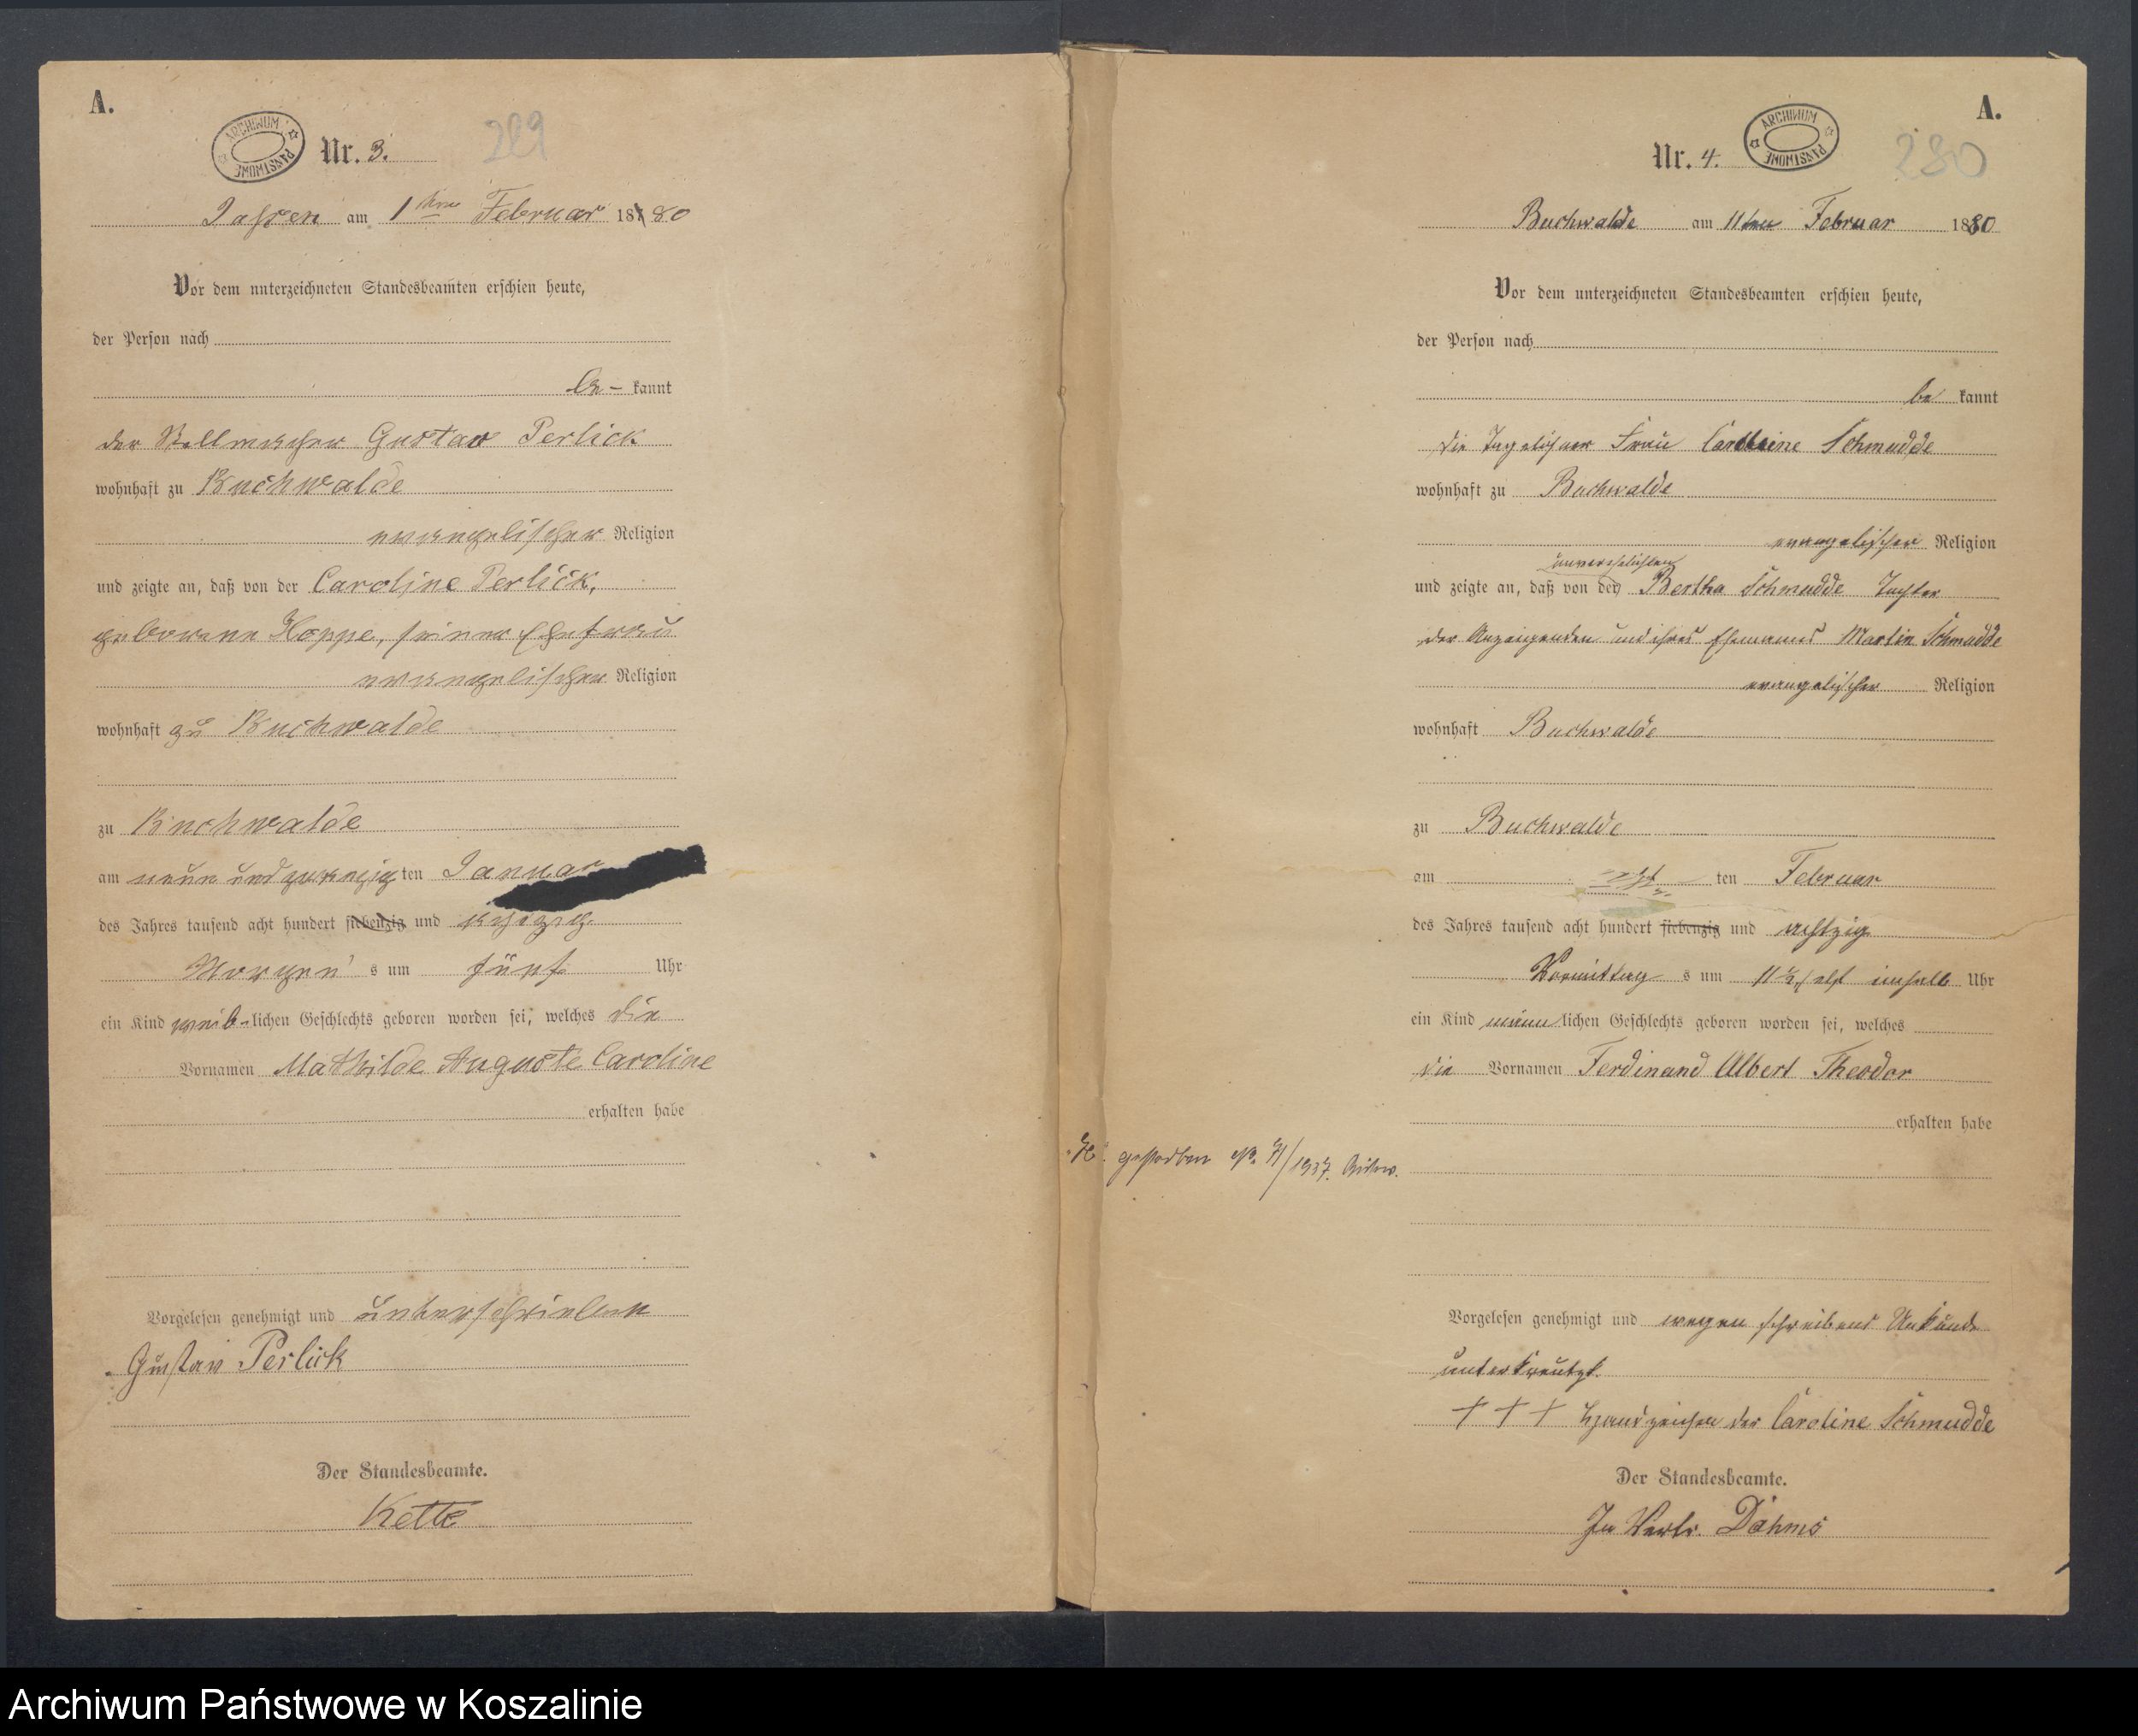 A.
ARCHIWUM PAŃSTWOWE
Nr. 3.
Jassen am 1ten Februar 1880
Vor dem unterzeichneten Standesbeamten erschien heute,
der Person nach
be- kannt
der Stellmacher Gustav Perlick
wohnhaft zu Buchwalde
evangelischer Religion
und zeigte an, daß von der Caroline Perlick,
geborene Hoppe, seiner Ehefrau
evangelischer Religion
wohnhaft zu Buchwalde
zu Buchwalde
am neun und zwanzig ten Januar
des Jahres tausend acht hundert siebenzig und achtzig
Morgen s um fünf Uhr
ein Kind weib-lichen Geschlechts geboren worden sei, welches die
Vornamen Mathilde Auguste Caroline
erhalten habe
Vorgelesen genehmigt und unterschrieben
Gustav Perlick
Der Standesbeamte.
Kette
A.
Nr. 4.
ARCHIWUM PAŃSTWOWE
280
Buchwalde am 11ten Februar 1880
Vor dem unterzeichneten Standesbeamten erschien heute,
der Person nach
be kannt
die Tagelöhner Frau Caroline Schmudde
wohnhaft zu Buchwalde
evangelischer Religion
unverehelichten
und zeigte an, daß von der Bertha Schmudde Tochter
der Anzeigenden und ihres Ehemannes Martin Schmudde
evangelischer Religion
wohnhaft Buchwalde
zu Buchwalde
am ten Februar
des Jahres tausend acht hundert siebenzig und achtzig
Vormittag s um 11½ elf einhalb Uhr
ein Kind männlichen Geschlechts geboren worden sei, welches
die Vornamen Ferdinand Albert Theodor
erhalten habe
gestorben /1937.
Vorgelesen genehmigt und wegen schreibens Unkunde
unterkreutzt.
+ + + Handzeichen der Caroline Schmudde
Der Standesbeamte.
In Vertr. Dahms
Archiwum Państwowe w Koszalinie